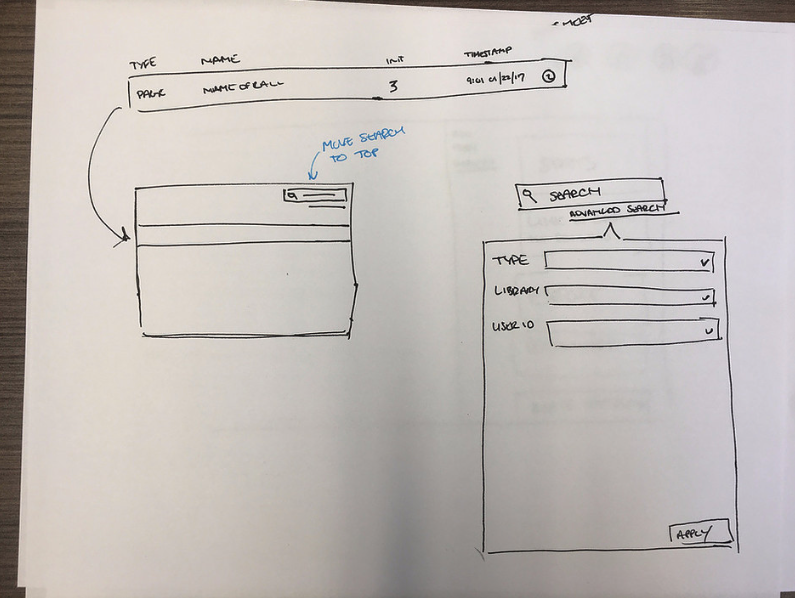 TYPE NAME INIT TIMESTAMP
NAME OF 3 9:01 01/22/17
MOVE SEARCH
TO TOP
SEARCH
ADVANCED SEARCH
TYPE
LIBRARY
USER ID
APPLY